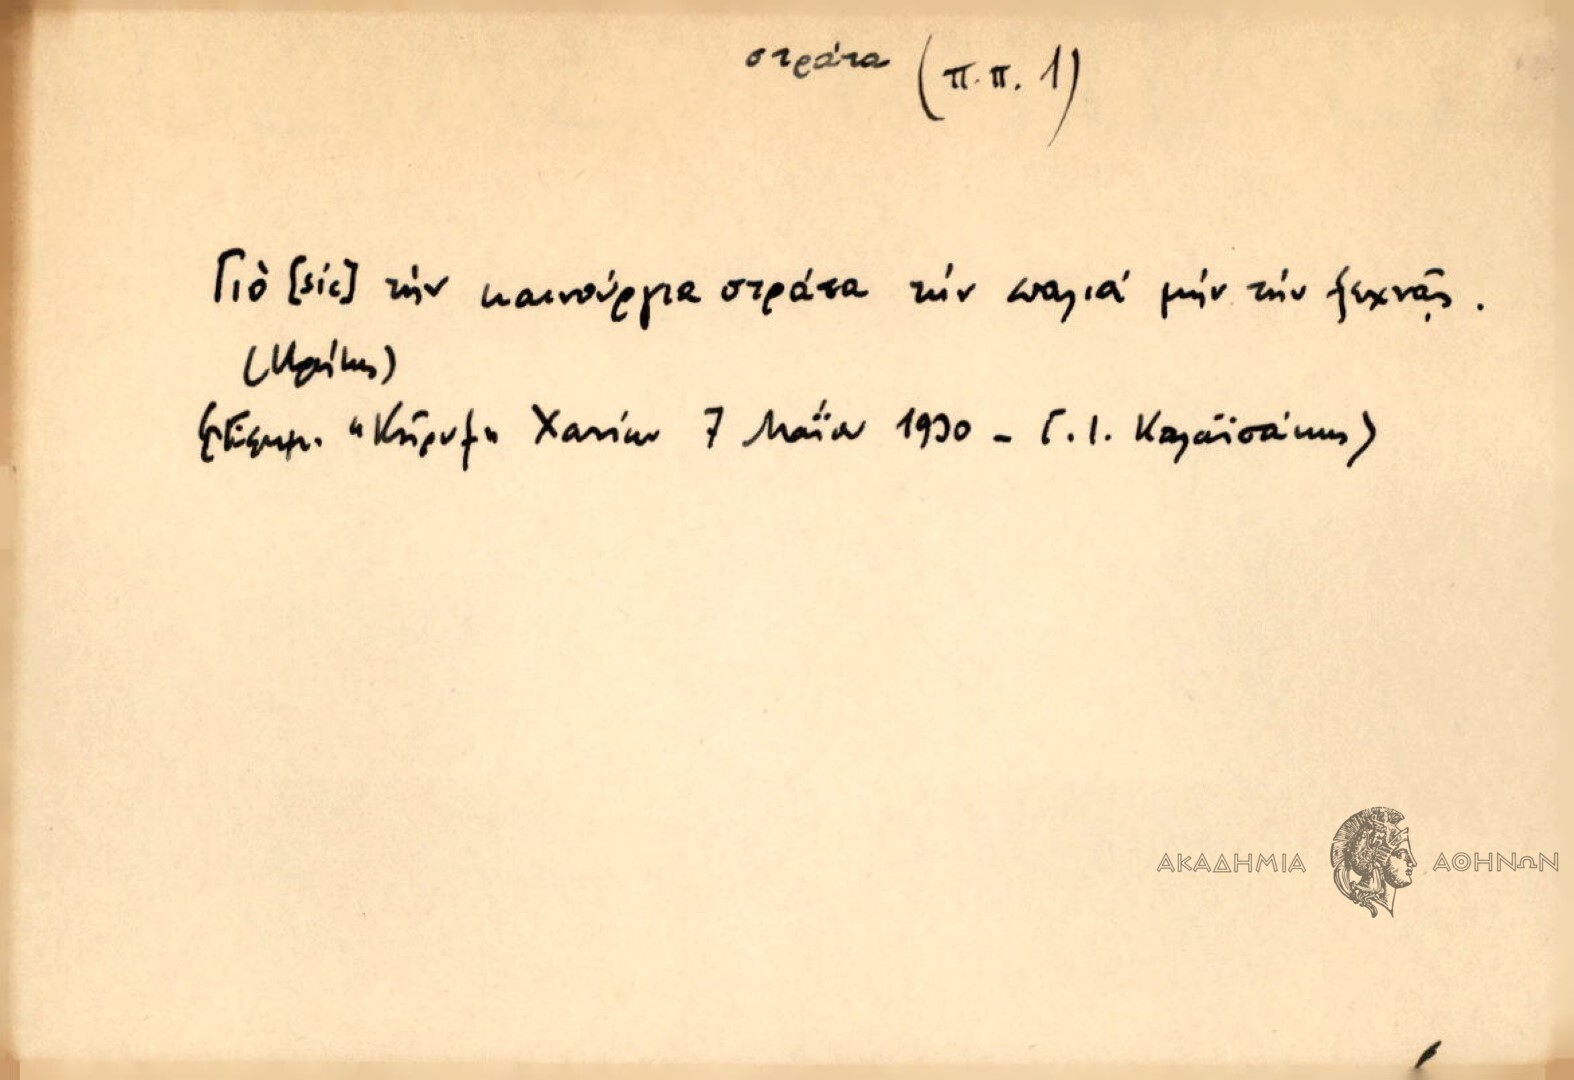 στράτα (π.π. 1)
Γιὸ [sic] τὴν καινούργια στράτα τὴν παλιά μὴν τὴν ξεχνᾷς.
(Κρήτης)
"Κῆρυξ" Χανίων 7 Μαΐου 1930 - Γ. Ι. Καλαϊσάκης)
ΑΚΑΔΗΜΙΑ ΑΘΗΝΩΝ